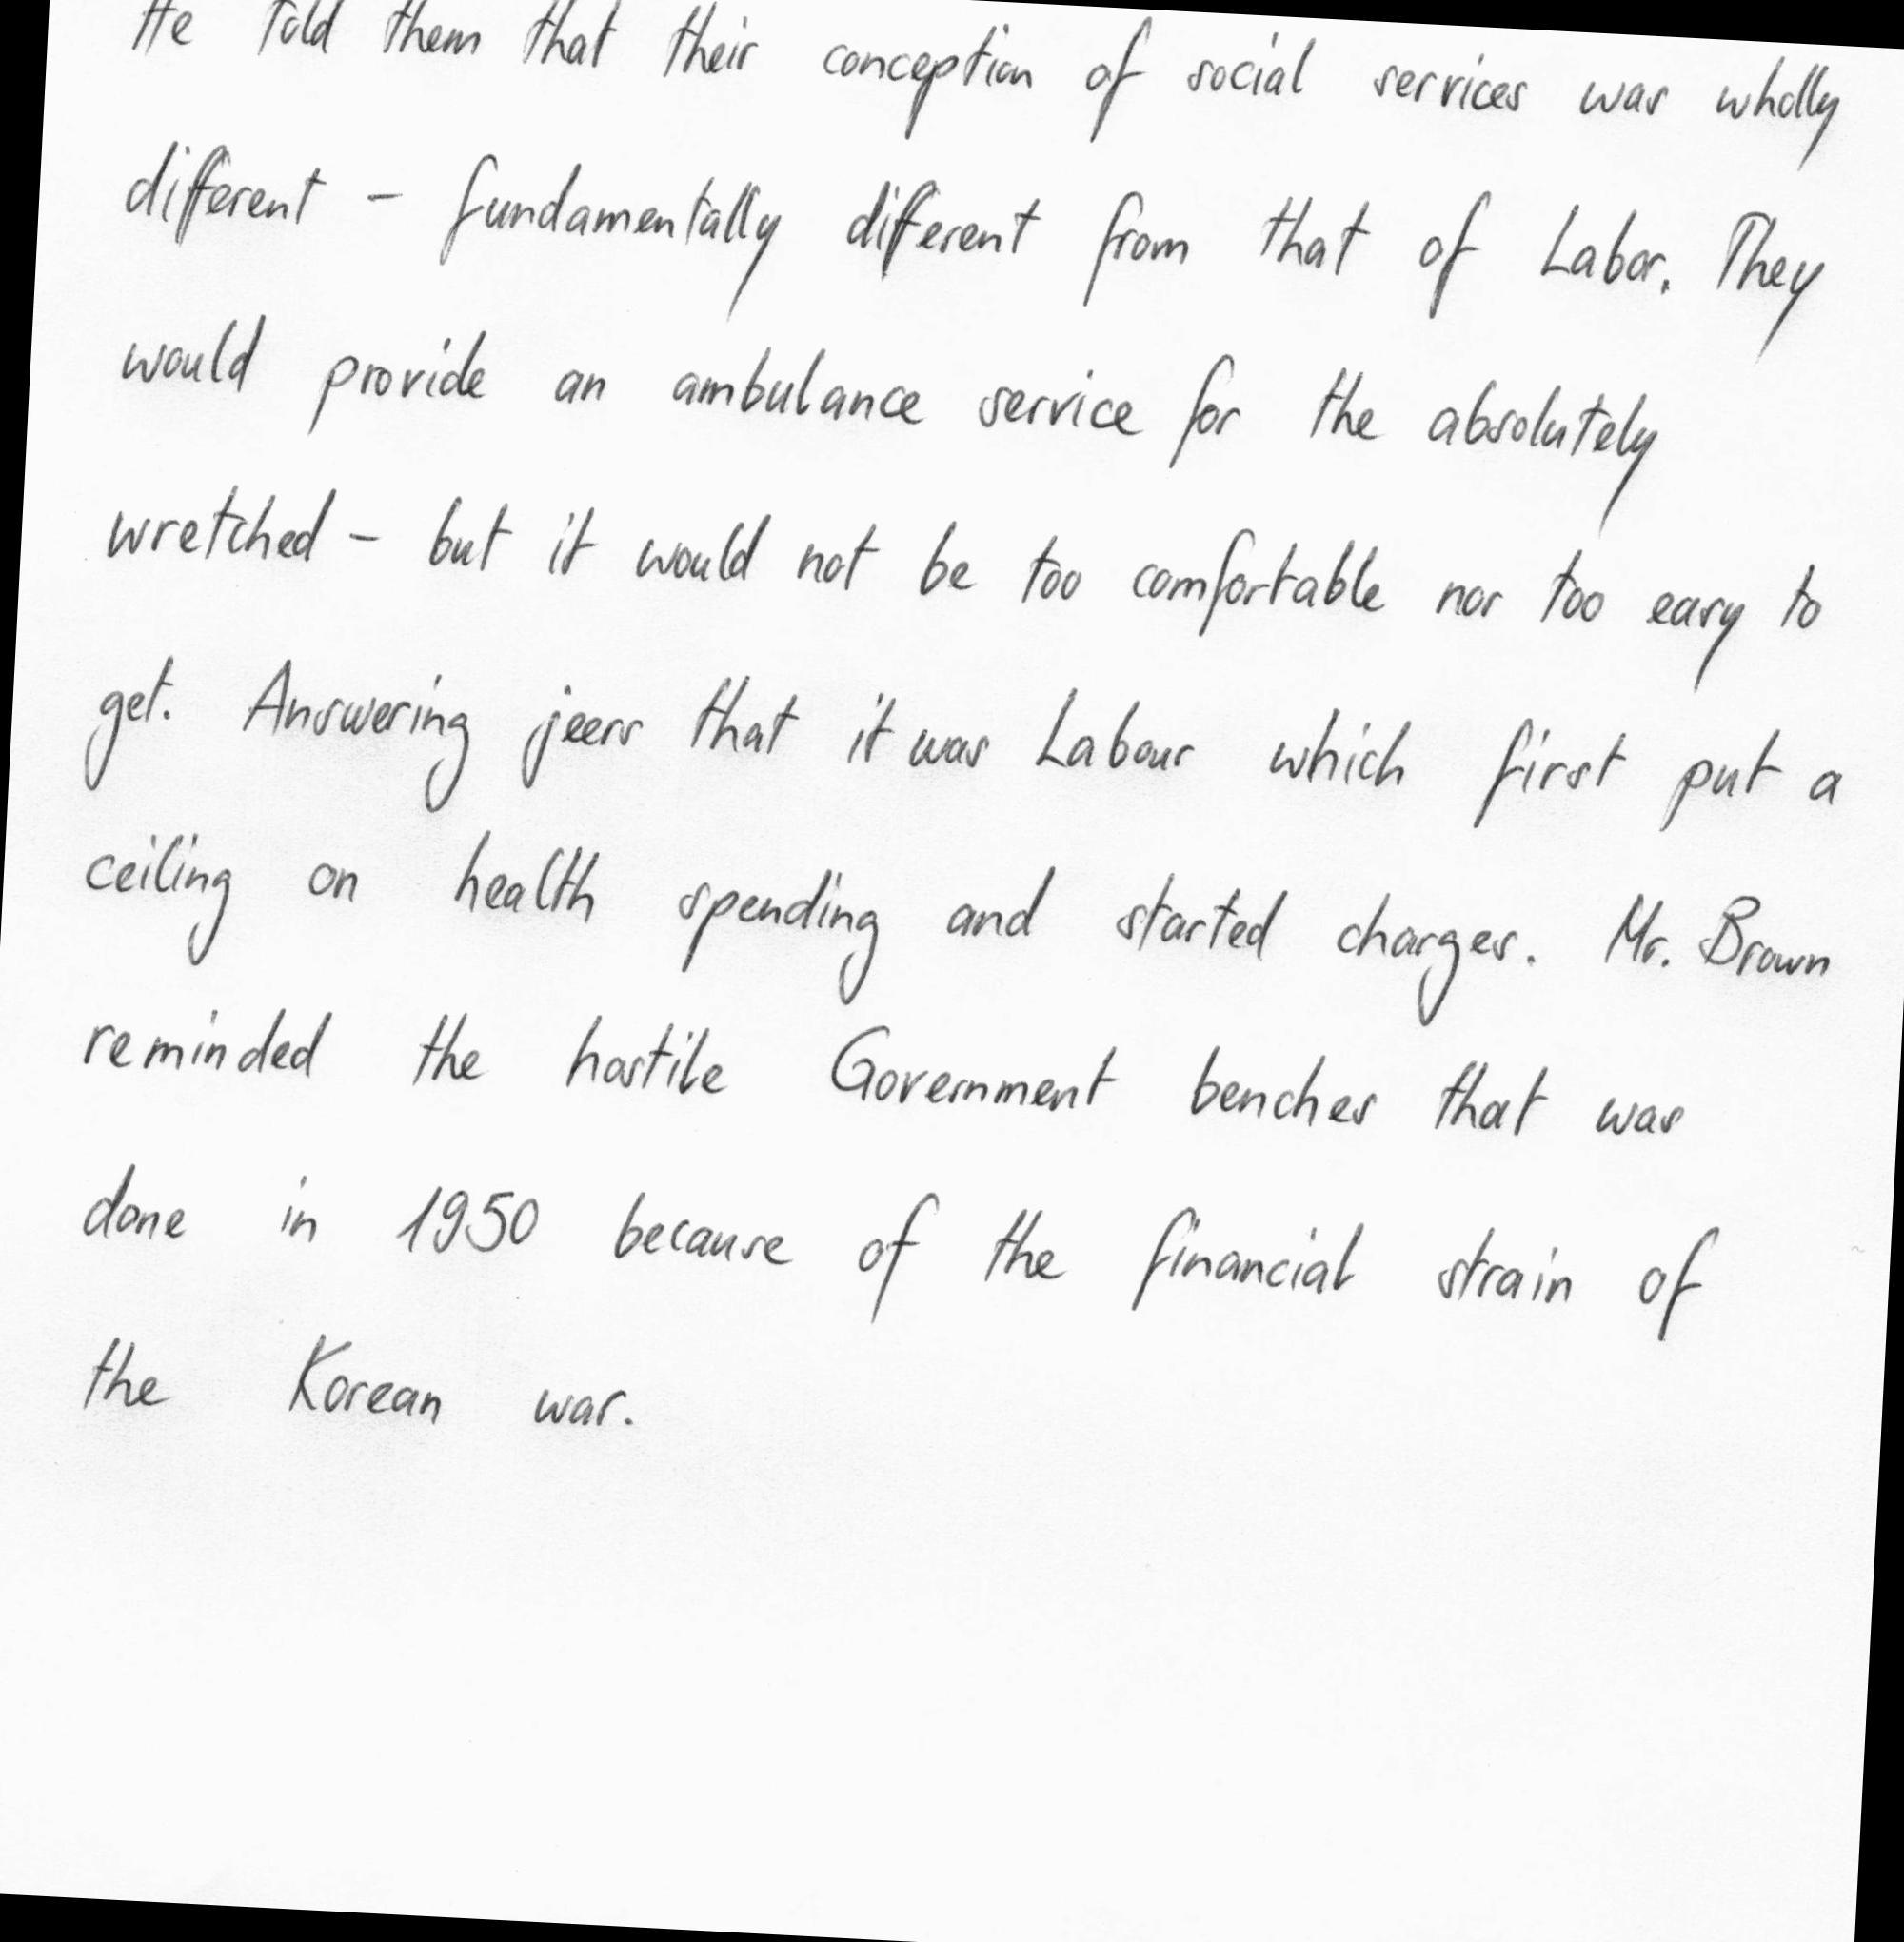 He told them that their conception of social services was wholly
different - fundamentally different from that of Labor. They
would provide an ambulance service for the absolutely
wretched - but it would not be too comfortable nor too easy to
get. Answering jeers that it was Labour which first put a
ceiling on health spending and started charges. Mr. Brown
reminded the hostile Government benches that was
done in 1950 because of the financial strain of
the Korean war.